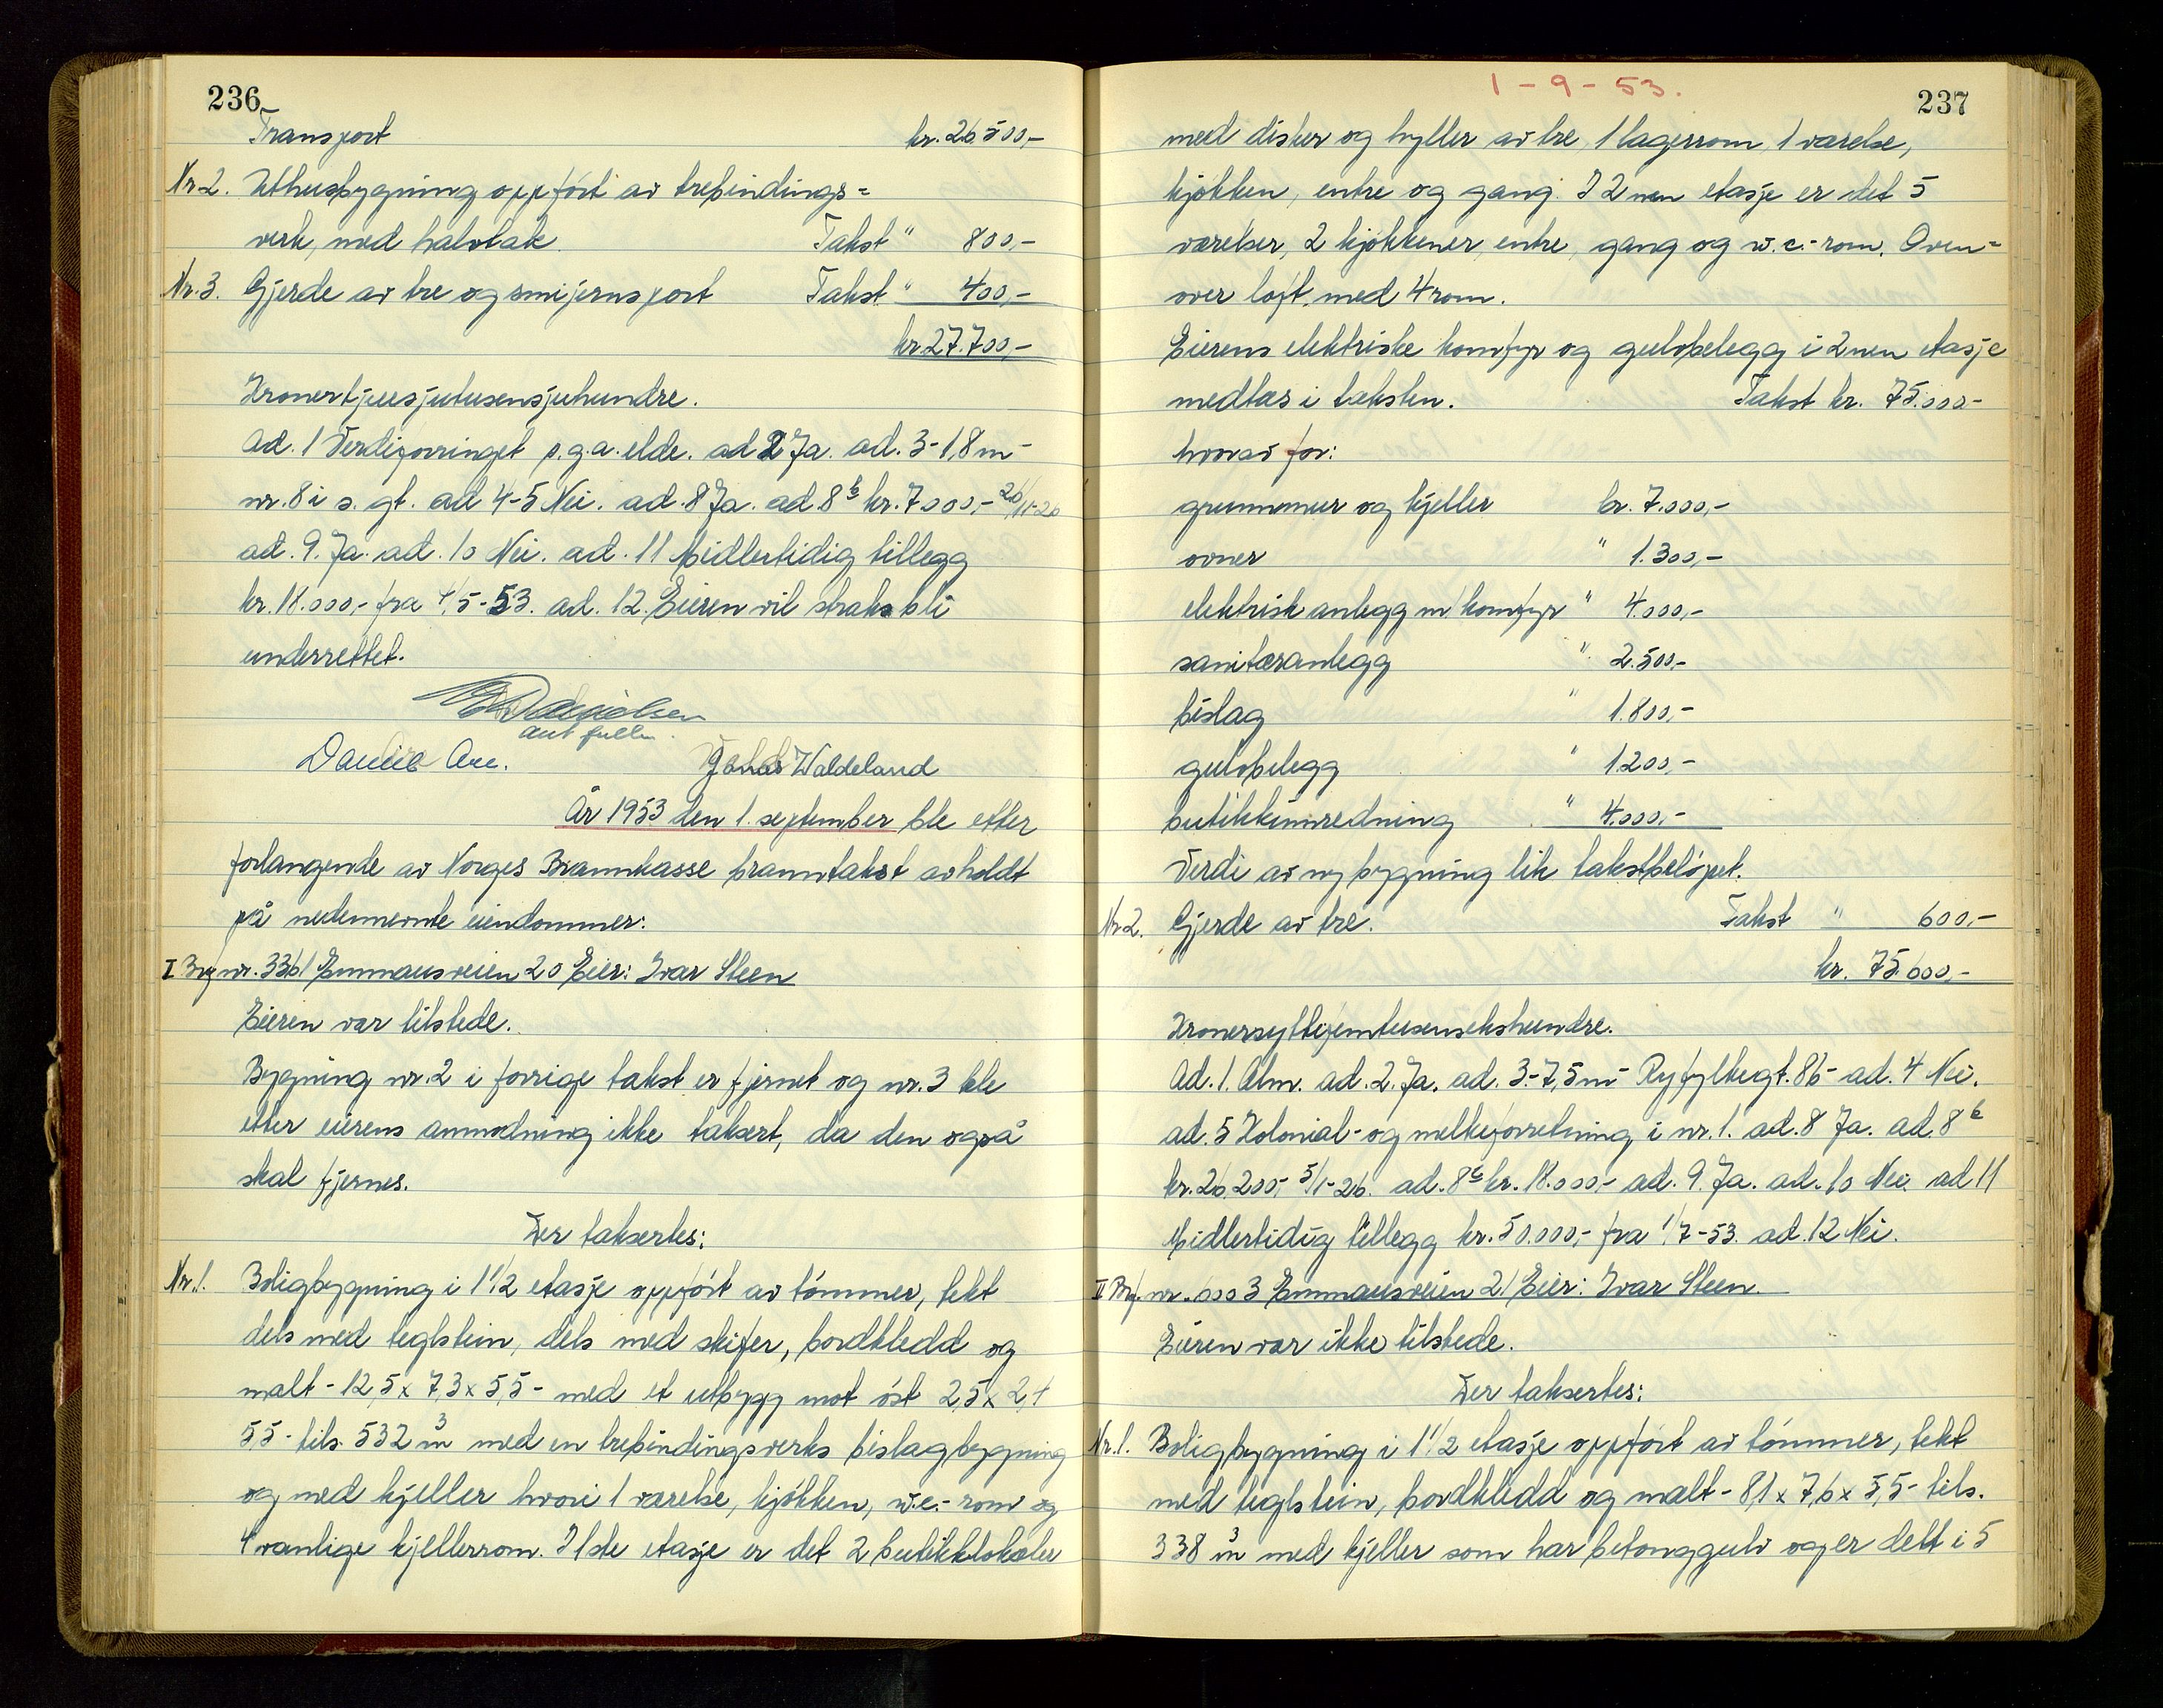 236
Transport kr. 26.500,-
Nr 2. Uthusbygning oppført av trebindings=
verk, med halvtak. Takst " 800,-
Nr. 3. Gjerde av tre og smijernsport Takst " 400,-
kr 27.700,-
Kronertjuesjutusensjuhundre.
Ad. 1 Verdiforringet p.g.a. elde. ad 2 Ja. ad. 3 - 1,8 m -
nr. 8 i s. gt. ad 4-5 Nei. ad. 8 Ja. ad. 8 b kr. 7000,- 26/11-26
ad. 9. Ja. ad. 10 Nei. ad. 11 Midlertidig tillegg
kr. 18.000,- fra 4/5-53. ad. 12. Eieren vil straks bli
underrettet.
Danielsen
aut fullm.
Jonas Waldeland
År 1953 den 1. september ble etter
forlangende av Norges Brannkasse branntakst avholdt
på nedennevnte eiendommer:
I Brf nr. 3361 Emmausveien 20 Eier: Ivar Steen
Eieren var tilstede.
Bygning nr. 2 i forrige takst er fjernet og nr. 3 ble
etter eierens anmodning ikke taksert, da den også
skal fjernes.
Der taksertes:
Nr. 1. Boligbygning i 1 1/2 etasje oppført av tømmer, tekt
dels med teglstein, dels med skifer, bordkledd og
malt - 12,5 x 7,3 x 5,5 - med et utbygg mot øst 2,5 x 2,1
5,5 - tils. 532 m3 med en trebindingsverks bislagbygning
og med kjeller hvori 1 værelse, kjøkken, w.c.- rom og
4 vanlige kjellerrom. I 1ste etasje er det 2 butikklokaler
1 - 9 - 53.
237
med disker og hyller av tre, 1 lagerrom, 1 værelse,
kjøkken, entre og gang. I 2nen etasje er det 5
værelser, 2 kjøkkener, entre, gang og w.c.- rom. Oven=
over loft med 4 rom.
Eierens elektriske komfyr og gulvbelegg i 2nen etasje
medtas i taksten. Takst kr. 75.000-
hvorav for:
grunnmur og kjeller kr. 7.000,-
ovner " 1.300,-
elektrisk anlegg m/komfyr " 4.000,-
sanitæranlegg " 2.500,-
bislag " 1.800,-
gulvbelegg " 1.200,-
butikkinnredning " 4.000,-
Verdi av ny bygning lik takstbeløpet.
Nr 2. Gjerde av tre. Takst " 600,-
kr. 75.600,-
Kronersyttifemtusensekshundre.
Ad. 1. Alm. ad. 2. Ja. ad. 3. - 7,5 m - Ryfylkegt. 86 - ad. 4 Nei.
ad. 5 Kolonial- og melkeforretning i nr. 1. ad. 8 Ja. ad. 8 b
kr. 26.200,- 5/1-26. ad. 8 c kr. 18.000,- ad. 9. Ja. ad. 10 Nei. ad 11
Midlertidig tillegg kr. 50.000,- fra 1/7-53. ad. 12 Nei.
II Brf. nr. 6003 Emmausveien 21 Eier: Ivar Steen.
Eieren var ikke tilstede.
Der taksertes:
Nr. 1. Boligbygning i 1 1/2 etasje oppført av tømmer, tekt
med teglstein, bordkledd og malt - 8,1 x 7,6 x 5,5 - tils.
338 m3 med kjeller som har betonggulv og er delt i 5